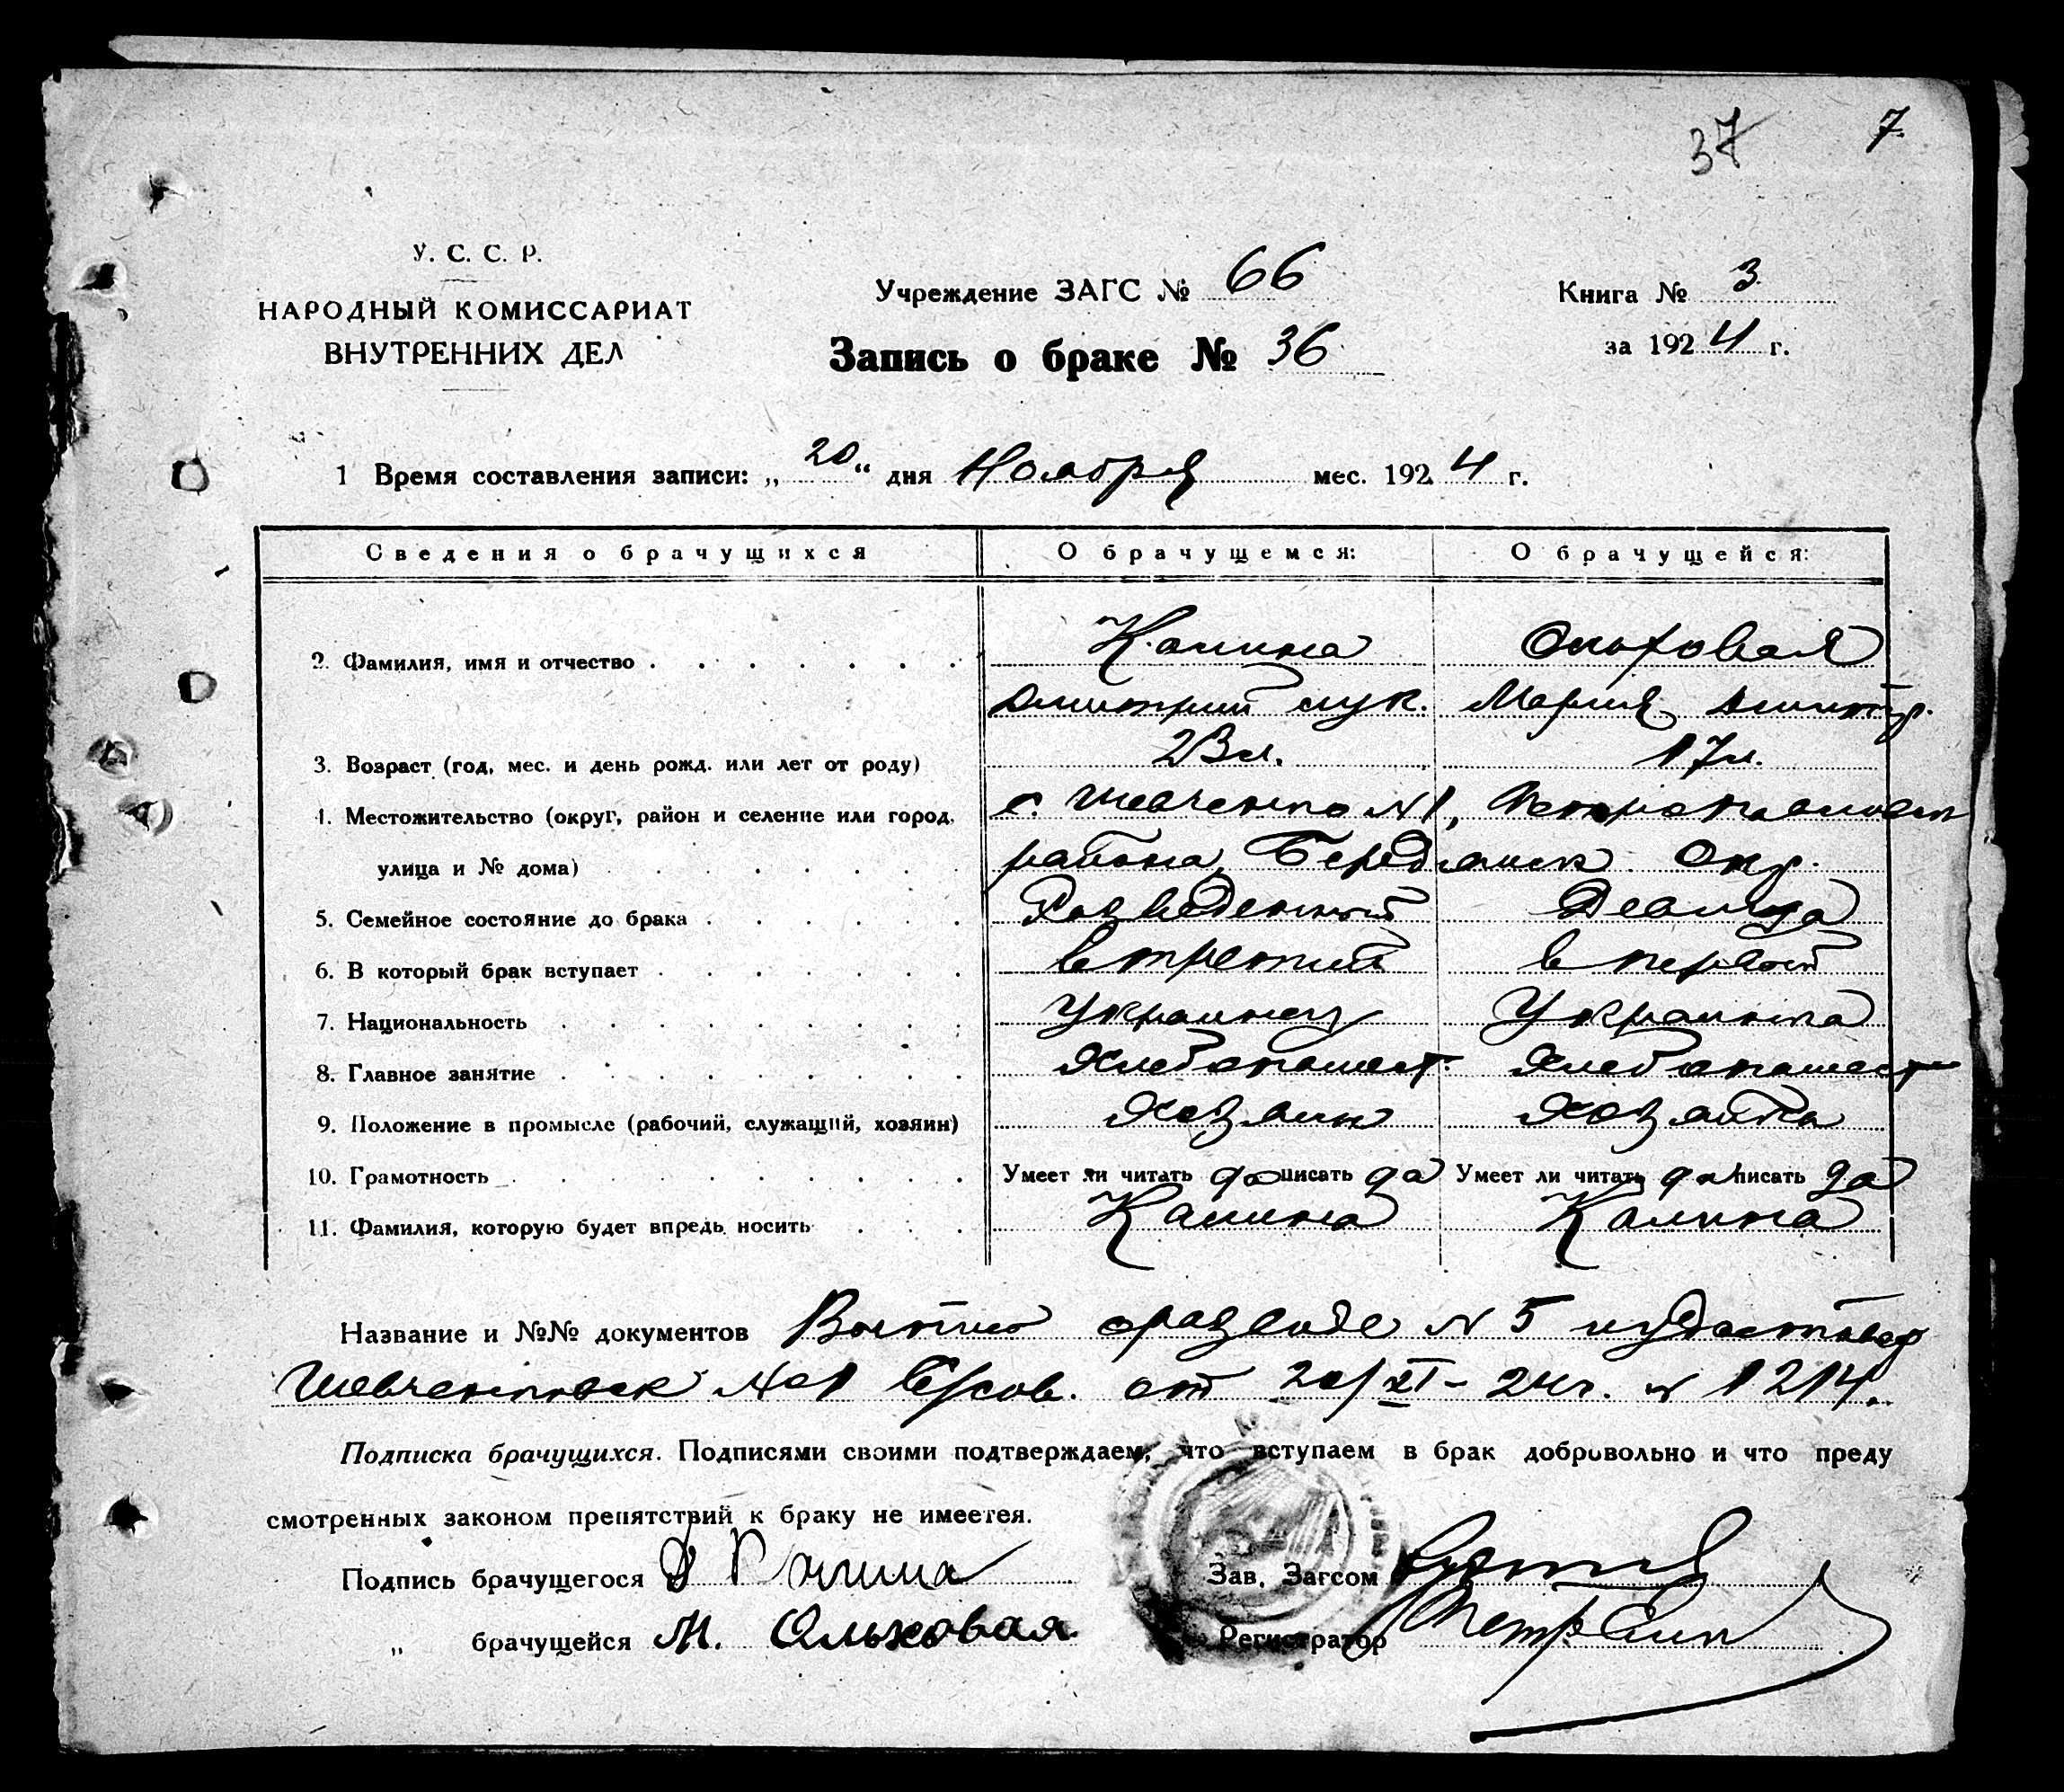 37 7.
У. С. С. Р.
НАРОДНЫЙ КОМИССАРИАТ
ВНУТРЕННИХ ДЕЛ
Учреждение ЗАГС № 66
Книга № 3
Запись о браке № 36
за 1924 г.
1 Время составления записи: „20“ дня Ноября мес. 1924 г.
Сведения о брачущихся О брачущемся: О брачущейся:
2. Фамилия, имя и отчество Калина Ольховая
Дмитрий Лук. Мария Дмитр.
3. Возраст (год, мес. и день рожд. или лет от роду) 23 л. 17 л.
4. Местожительство (округ, район и селение или город, с. Шевченко №1,
улица и № дома) района, Бердянск. Окр.
5. Семейное состояние до брака Разведенный Девица
6. В который брак вступает в третий в первой
7. Национальность Украинец Украинка
8. Главное занятие Хлебопашест. Хлебопашест
9. Положение в промысле (рабочий, служащий, хозяин) Хозяин Хозяйка
10. Грамотность Умеет ли читать да писать да Умеет ли читать да писать да
11. Фамилия, которую будет впредь носить Калина Калина
Название и №№ документов о разводе № 5 и удостовер
Шевченковск №1 С/сов. от 20/XI-24г. № 1214.
Подписка брачущихся. Подписями своими подтверждаем, что вступаем в брак добровольно и что преду
смотренных законом препятствий к браку не имеется.
Подпись брачущегося Д Калина Зав. Загсом
„ брачущейся М. Ольховая Регистратор